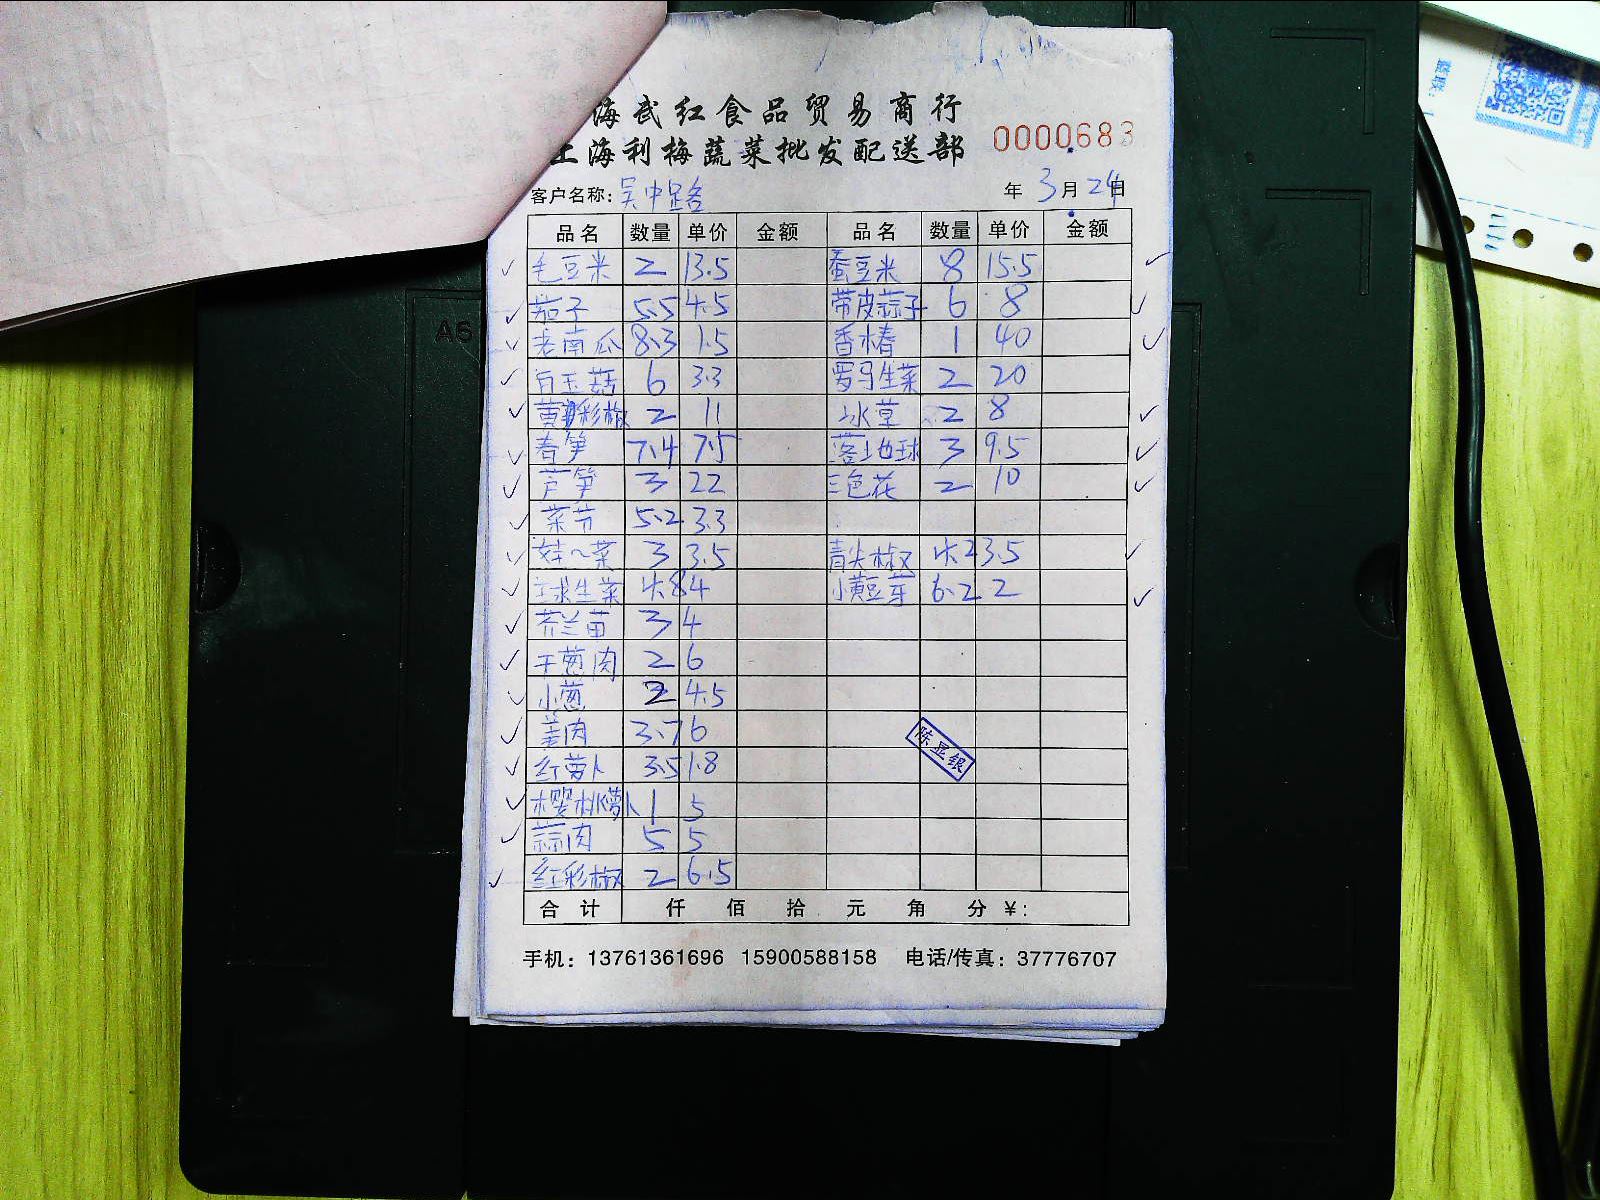 海武红食品贸易商行
上海利梅蔬菜批发配送部
0000683
客户名称: 吴中路 年 3 月 24 日
品名 数量 单价 金额 品名 数量 单价 金额
毛豆米 2 13.5 蚕豆米 8 15.5
茄子 5.5 4.5 带皮蒜子 6 8
老南瓜 8.3 1.5 香椿 1 40
白玉菇 6 3.3 罗马生菜 2 20
黄彩椒 2 11 冰草 2 8
春笋 7.4 7.5 落地球 3 9.5
芦笋 3 22 三色花 2 10
菜芯 5.2 3.3
娃~菜 3 3.5 青尖椒 4.2 3.5
球生菜 4.8 4 小黄豆芽 6.2 2
芥兰苗 3 4
干葱肉 2 6
小葱 2 4.5
姜肉 3.7 6
红萝卜 3.5 1.8
樱桃萝卜 1 5
蒜肉 5 5
红彩椒 2 6.5
陈显银
合计 仟 佰 拾 元 角 分 ¥:
手机: 13761361696 15900588158 电话/传真: 37776707
A5